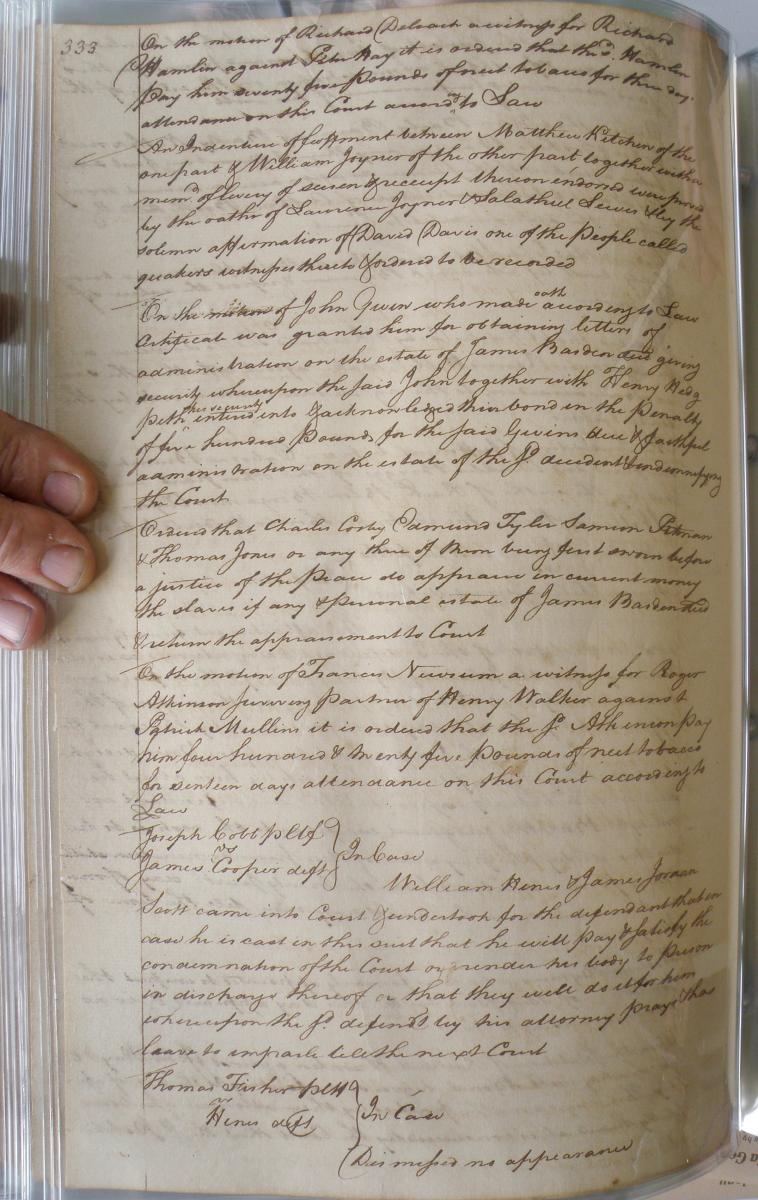 333
On the motion of Richard Deloach a witness for Richard
Hamlin against Peter Hay it is ordered that the sd. Hamlin
pay him seventy five pounds of neet tobacco for three days
attendance on this Court accordg to Law
An Indenture of feoffment between Matthew Kitchen of the
one part & William Joyner of the other part together with a
memd of livery of seisen & receipt thereon endorsed were proved
by the oaths of Lawrence Joyner & Salathiel Lewis & by the
solemn affirmation of David Davis one of the People called
quakers witnesses thereto & ordered to be recorded
On the motion of John Gwin who made oath according to Law
Certificate was granted him for obtaining letters of
administration on the estate of James Basden decd giving
security whereupon the said John together with Henry Hedg
peth his security entered into & acknowledged their bond in the Penalty
of five hundred Pounds for the said Gwins due & faithful
administration on the estate of the sd. decedent & indemnifying
the Court
Ordered that Charles Cosby Edmund Tyler Samson Pitman
& Thomas Jones or any three of them being first sworn before
a justice of the Peace do appraise in current money
the slaves if any & personal estate of James Basden decd
& return the appraisement to Court
On the motion of Francis Newsum a witness for Roger
Atkinson surviving partner of Henry Walker against
Patrick Mullins it is ordered that the sd. Atkinson pay
him four hundred & twenty five pounds of neet tobacco
for seventeen days attendance on this Court according to
Law
Joseph Cobb pltf
vs
James Cooper deft
In Case
William Hines & James Jordan
came into Court & undertook for the defendant that in
case he is cast in this suit that he will pay & satisfy the
condemnation of the Court or render his body to prison
in discharge thereof or that they will do it for him
whereupon the sd. defendt by his attorney prays & has
leave to imparle till the next Court
Thomas Fisher pltf
vs
Hines deft
In Case
Dismissed no appearance